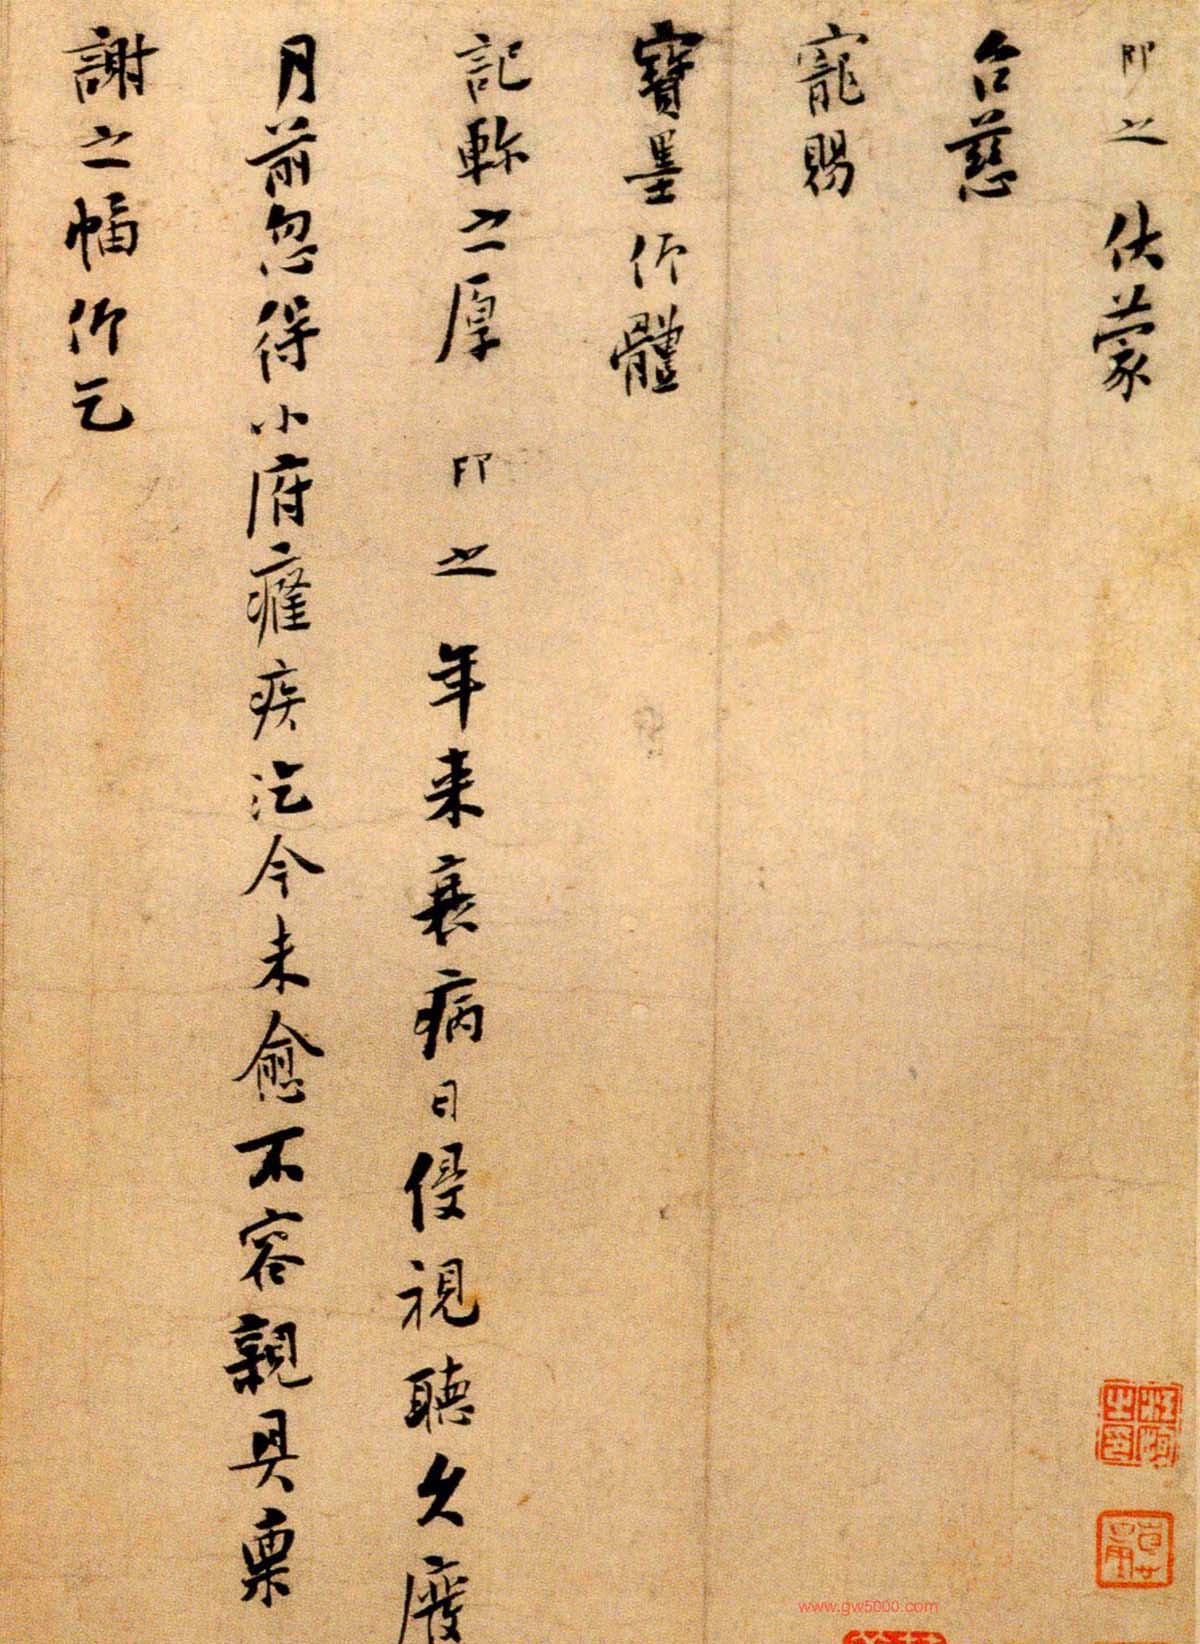 即之 伏蒙
台慈
寵賜
寶墨仰體
記軫之厚 即之 年来衰病日侵視聽久廢
月前忽得小府癰疾汔今未愈不容親具稟
謝之幅仰乞
www.gw5000.com